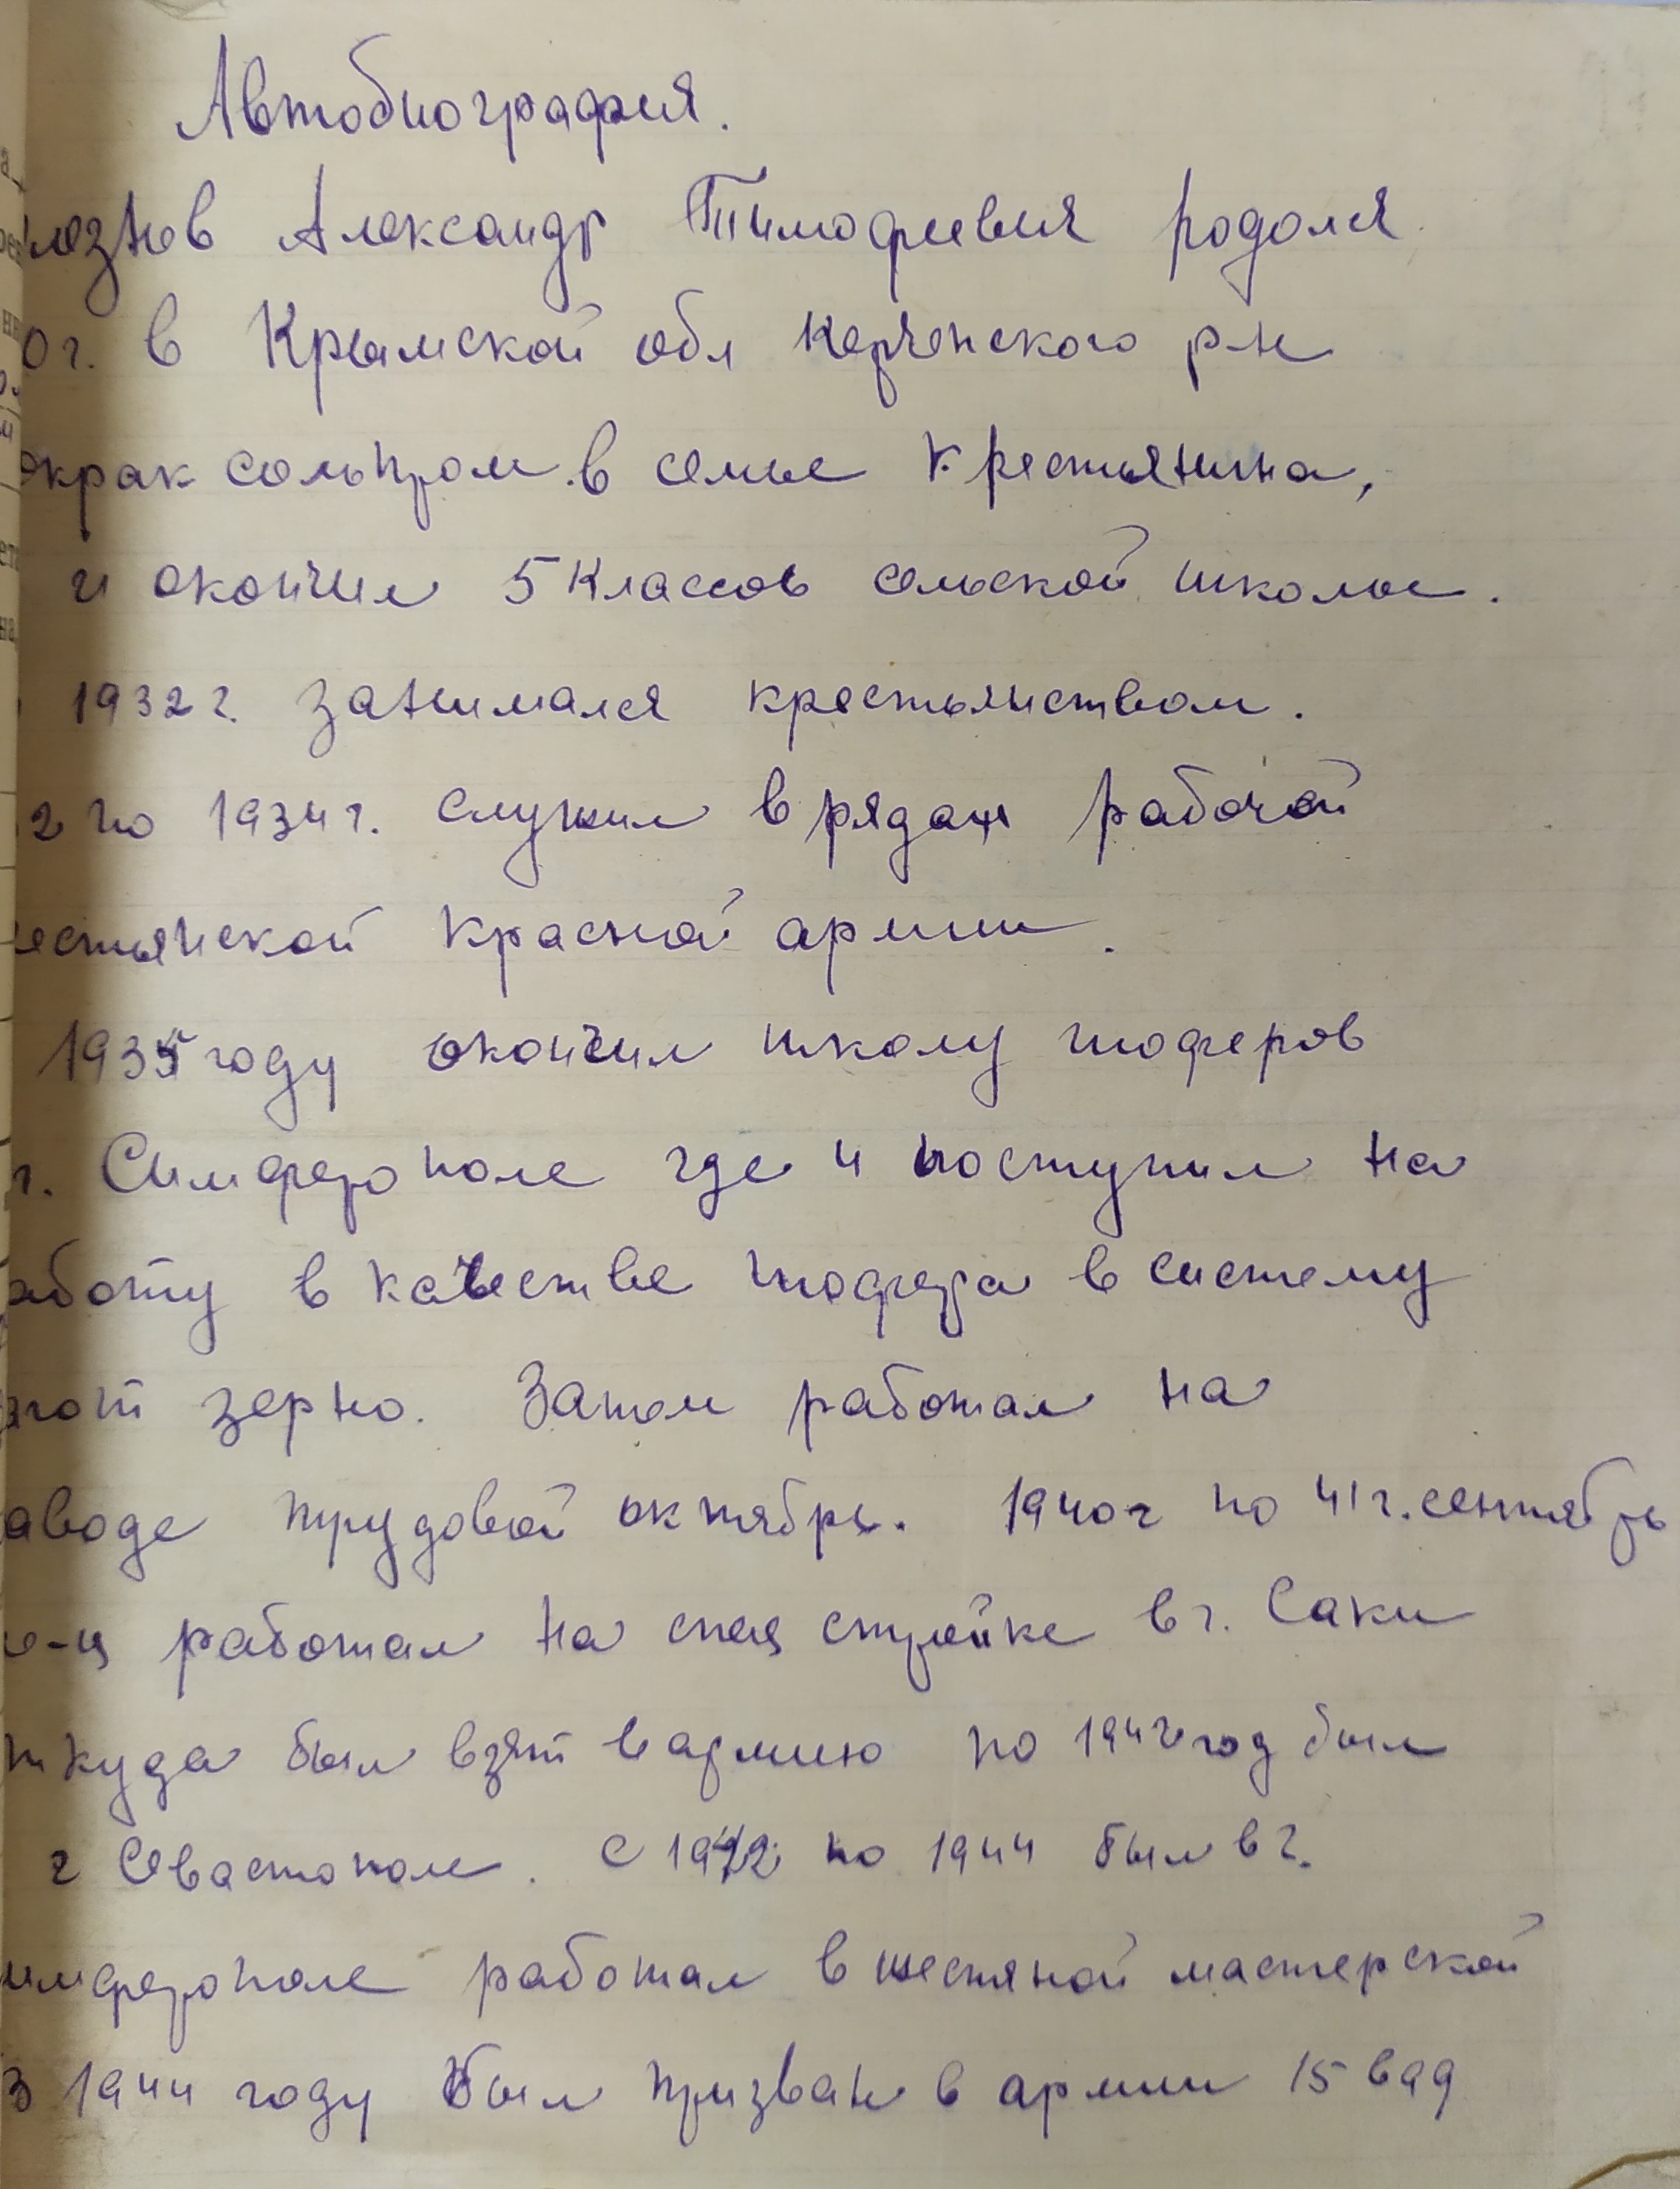 Автобиография.
лезнев Александр Тимофеевич родолся
0 г. в Крымской обл Керченского р-н
окрак сольпром. в семье крестьянина,
и окончил 5 классов сельской школы.
1932 г. занимался крестьянством.
2 по 1934 г. служил в рядах рабочей
естьянской Красной армии.
1935 году окончил школу шоферов
г. Симферополе где и поступил на
аботу в качестве шофера в систему
агот зерно. Затем работал на
аводе трудовой октябрь. 1940 г по 41 г. сентябрь
работал на спец стройке в г. Саки
ткуда был взят в армию по 1942 год был
г Севастополе. С 1942 по 1944 был в г.
имферополе работал в жестяной мастерской
В 1944 году был призван в армии 15 вад